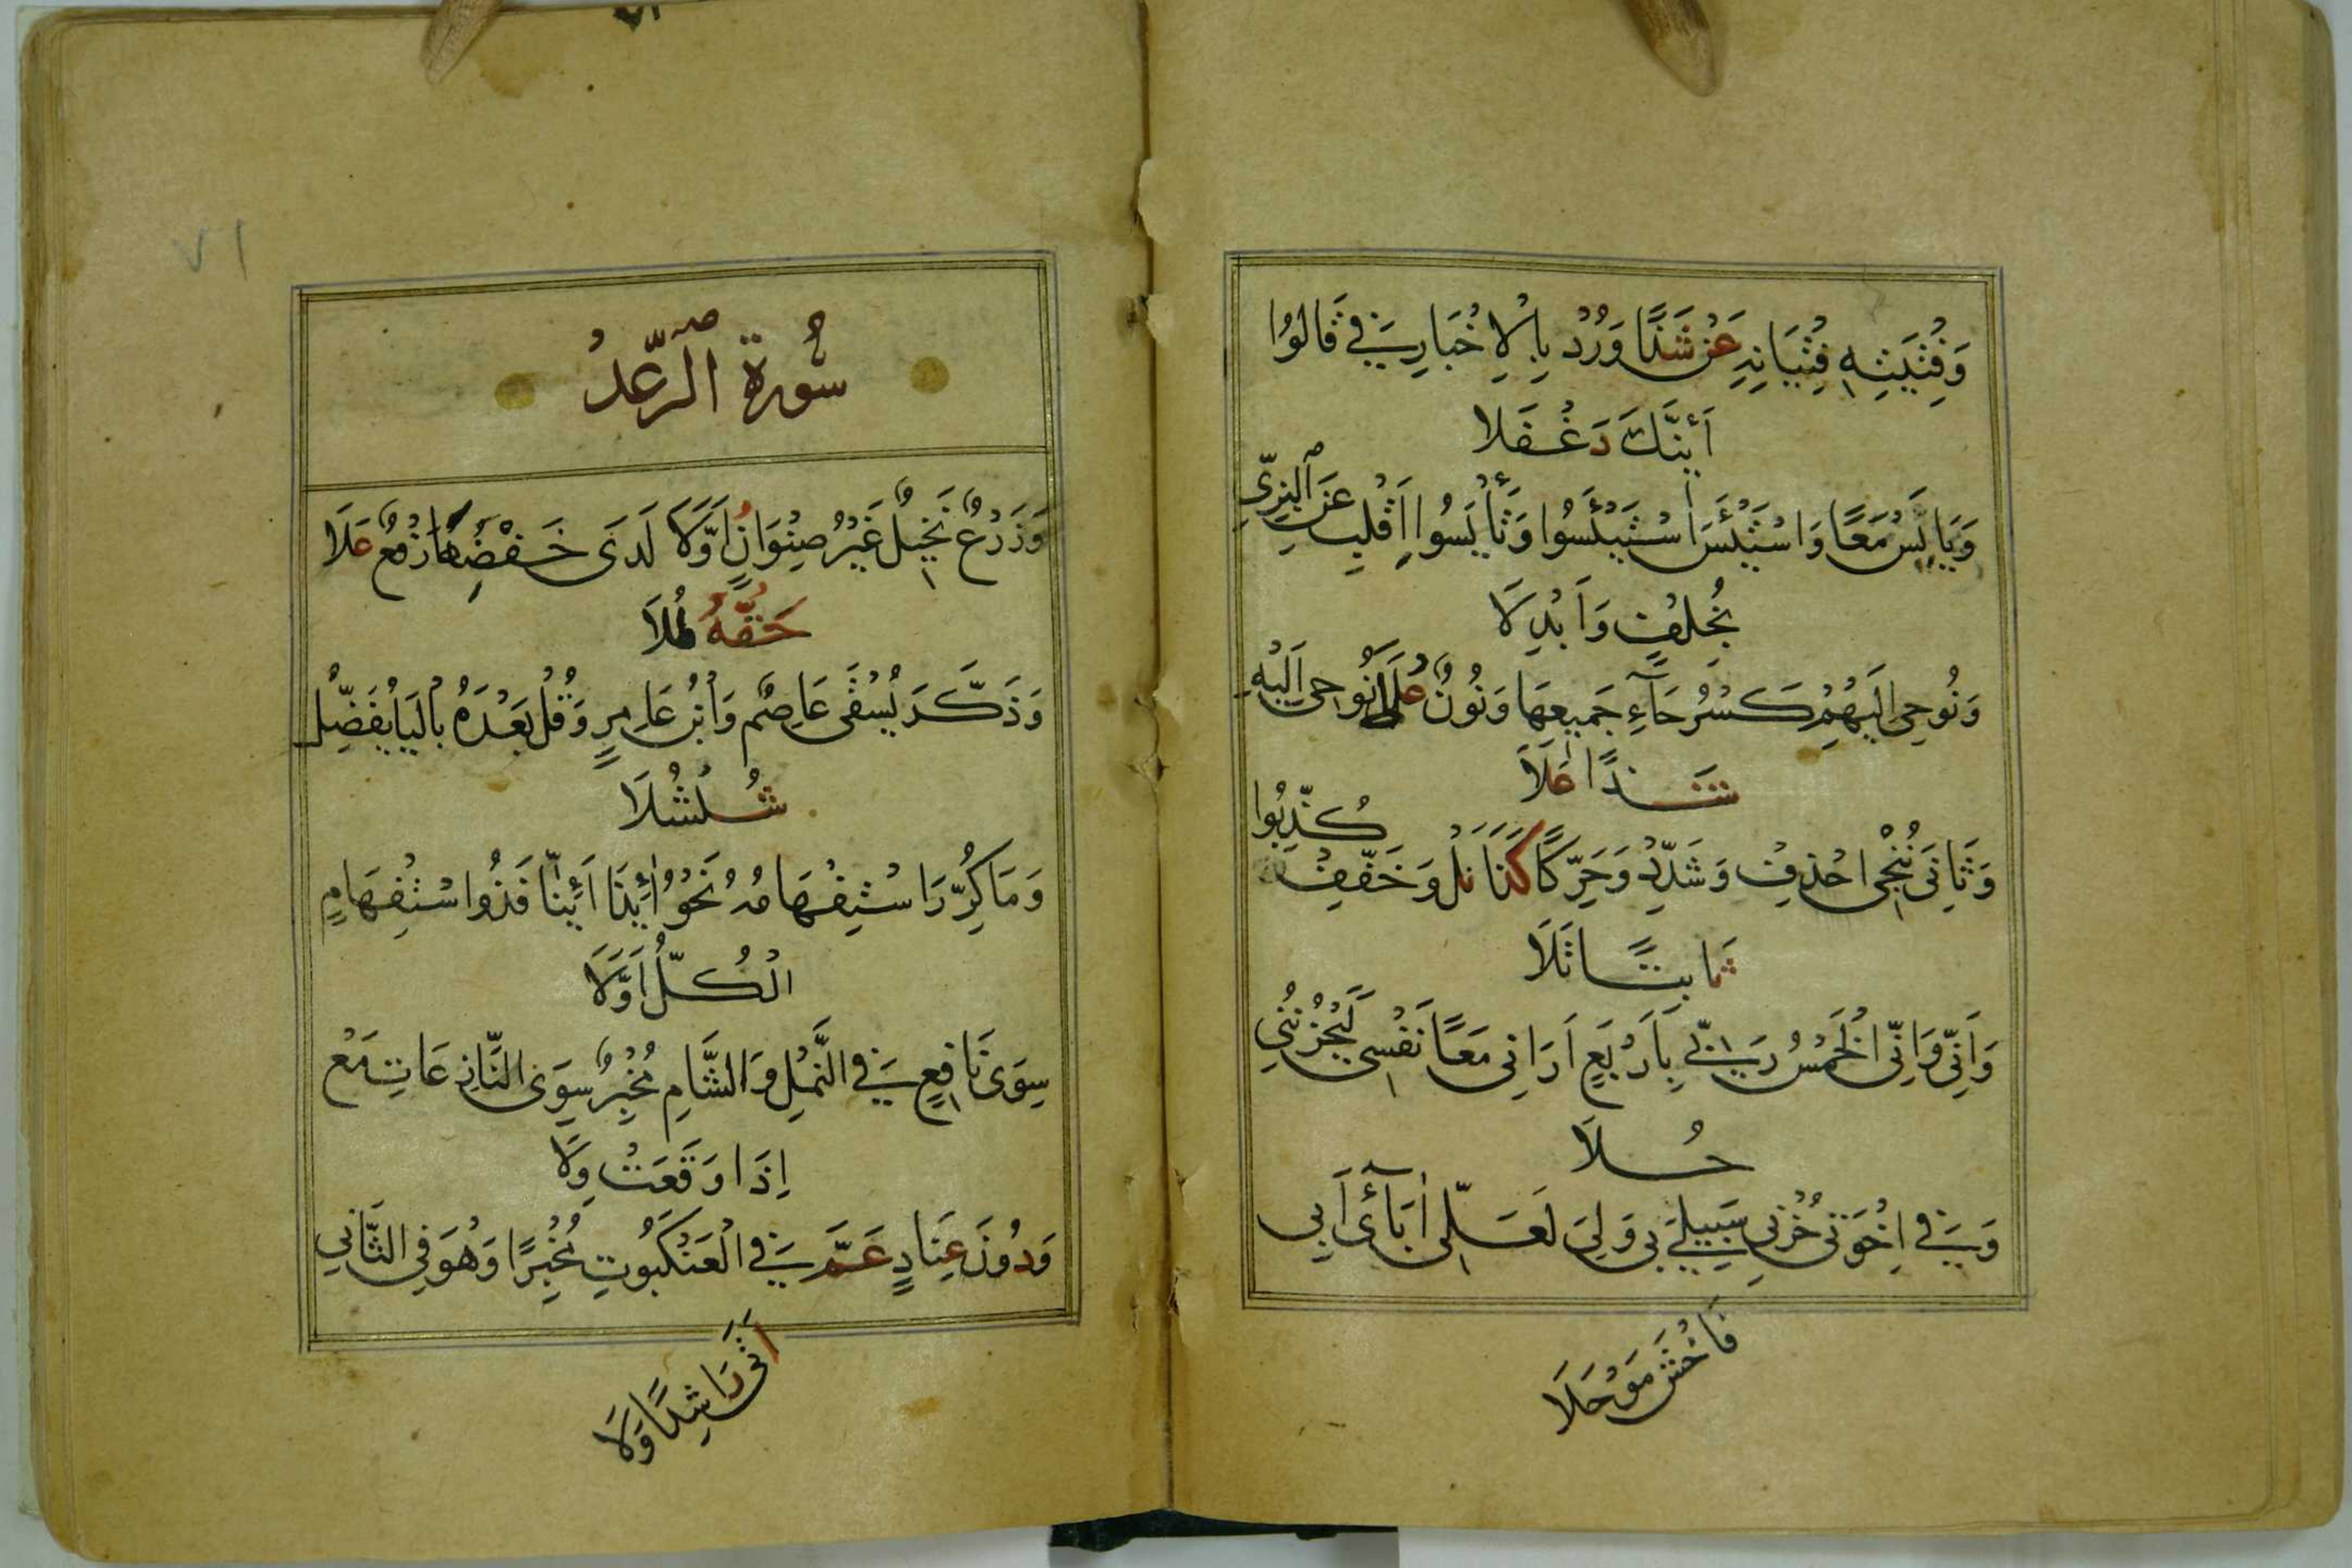 وَفِتْيَتِهِ فِتْيَانِهِ عَنْ شَذًا وَرُدْ بِالْاِخْبَارِ فِي قَالُوا
أَئِنَّكَ دَغْفَلَا
وَيَايْئَسْ مَعًا وَاسْتَيْئَسَ اسْتَيْئَسُوا وَتَايْئَسُوا اقْلِبْ عَنِ الْبَزِّي
بِخُلْفٍ وَأَبْدِلَا
وَنُوحِي إِلَيْهِمْ كَسْرُ حَاءِ جَمِيعِهَا وَنُونٌ عُلًا نُوحِي إِلَيْهِ
شَذًا عَلَا
وَثَانِيَ نُنْجِي احْذِفْ وَشَدِّدْ وَحَرِّكًا كَذَا نَلْ وَخَفِّفْ كُذِّبُوا
ثَابِتًا تَلَا
وَأَنِّي وَإِنِّي الْخَمْسُ رَبِّي بِأَرْبَعٍ أَرَانِي مَعًا نَفْسِي لَيَحْزُنُنِي
حُلَا
وَفِي إِخْوَتِي حُزْنِي سَبِيلِيَ بِي وَلِي لَعَلِّي آبَائِي أَبِي
فَاخْشَ مَوْحَلَا
٧١
سُورَةُ الرَّعْدِ
وَزَرْعٌ نَخِيلٌ غَيْرُ صِنْوَانٍ أَوَّلَا لَدَى خَفْضِهَا رَفْعٌ عَلَا
حَقُّهُ طُلَا
وَذَكَّرَ يُسْقَى عَاصِمٌ وَابْنُ عَامِرٍ وَقُلْ بَعْدَهُ بِالْيَا يُفَضِّلُ
شُلْشُلَا
وَمَا كُرِّرَ اسْتِفْهَامُهُ نَحْوُ أَئِذَا أَئِنَّا فَذُو اسْتِفْهَامٍ
الْكُلُّ أَوَّلَا
سِوَى نَافِعٍ فِي النَّمْلِ وَالشَّامِ مُخْبِرٌ سِوَى النَّازِعَاتِ مَعْ
إِذَا وَقَعَتْ وِلَا
وَدُونَ عِنَادٍ عَمَّ فِي الْعَنْكَبُوتِ مُخْبِرًا وَهُوَ فِي الثَّانِي
أَتَى رَاشِدًا وَلَا